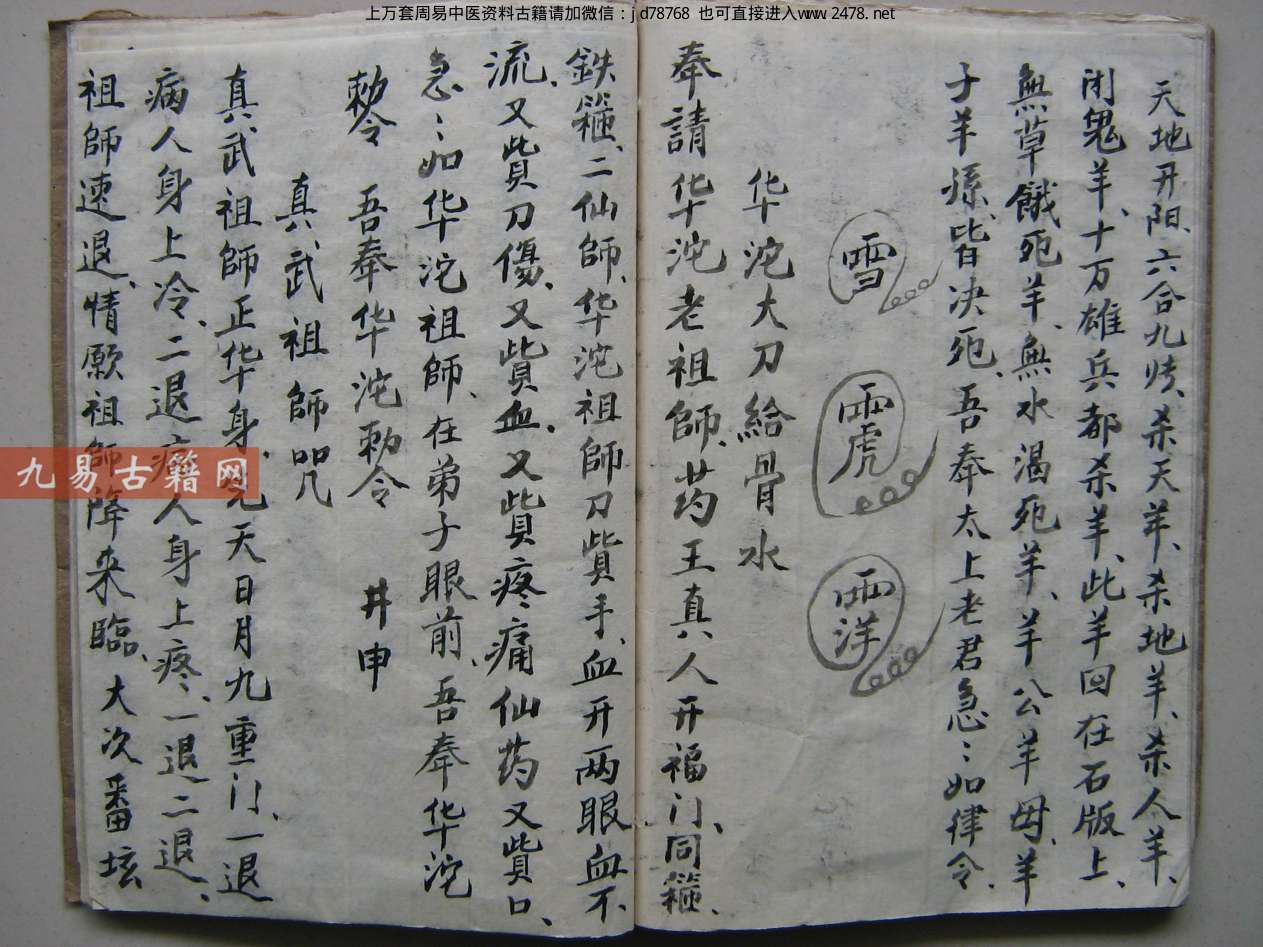 上万套周易中医资料古籍请加微信：jd78768 也可直接进入www.2478.net
天地开阳、六合九 、杀天羊、杀地羊、杀人羊、
闭鬼羊、十万雄兵都杀羊、此羊回在石版上、
無草餓死羊、無水渴死羊、羊公羊母、羊
子羊孫、皆决死、吾奉太上老君急〻如律令、
雪
䨚
䨾
华沱大刀給骨水
奉請华沱老祖師、药王真人开福门、同箍、
鉄箍、二仙師、华沱祖師刀貲手、血开两眼血不
流、又貲刀傷、又貲血、又貲疼痛仙药又貲口、
急〻如华沱祖師、在弟子眼前、吾奉华沱
勅令 吾奉华沱勅令 井申
真武祖師咒
真武祖師正华身、 天日月九重门、一退
病人身上冷、二退病人身上疼、一退二退、
祖師速退、情愿祖師降来臨、大次番坛
九易古籍网